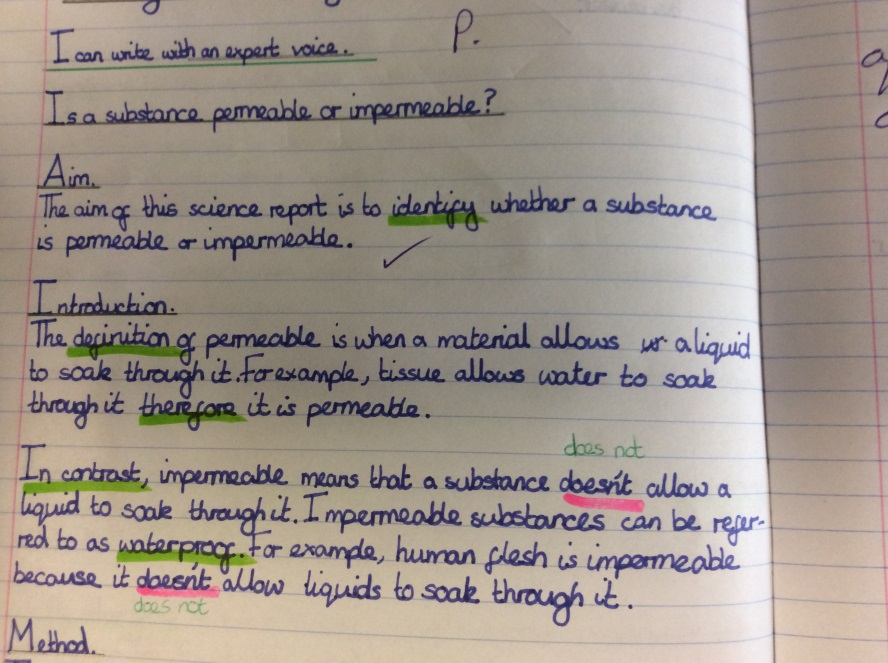 I can write with an expert voice. P.
Is a substance permeable or impermeable?
Aim.
The aim of this science report is to identify whether a substance
is permeable or impermeable.
Introduction.
The definition of permeable is when a material allows a liquid
to soak through it. For example, tissue allows water to soak
through it therefore it is permeable.
does not
In contrast, impermeable means that a substance doesn't allow a
liquid to soak through it. Impermeable substances can be refer-
red to as waterproof. For example, human flesh is impermeable
because it doesn't allow liquids to soak through it.
does not
Method.